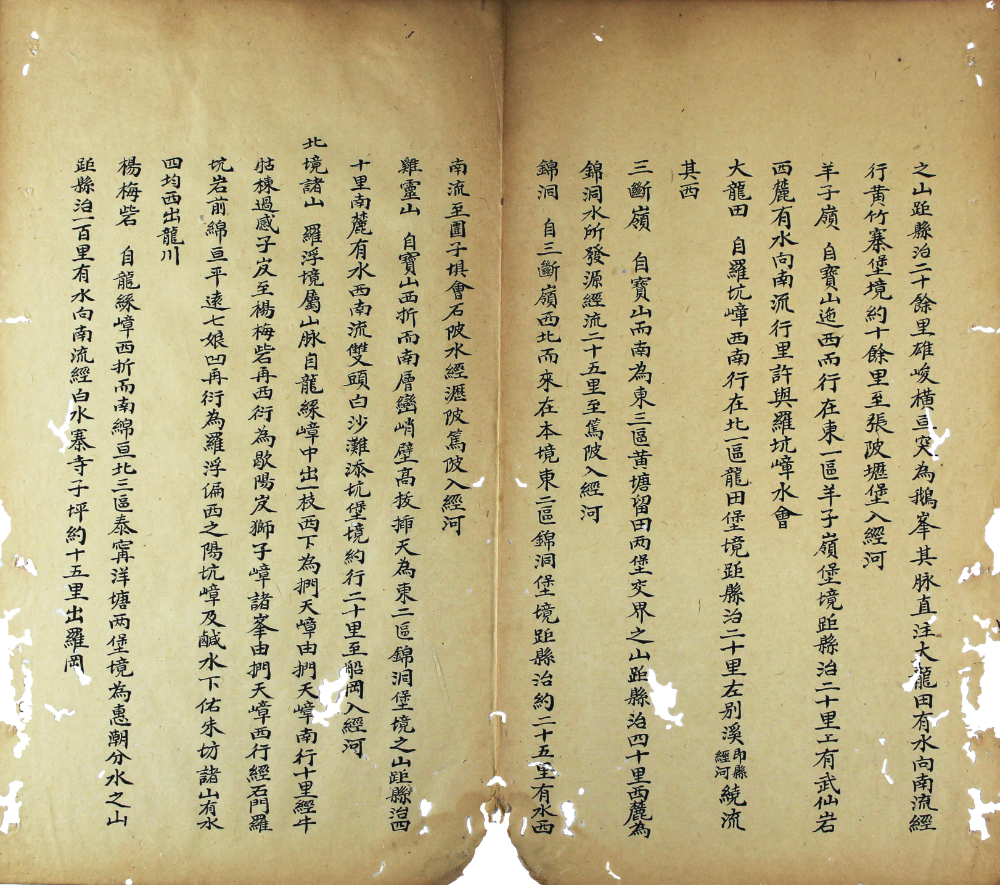 之山距縣治二十餘里雄峻橫亘突為鵝峯其脉直注大龍田有水向南流經
行黃竹寨堡境約十餘里至張陂壢堡入經河
羊子嶺　自寶山迤西而行在東一區羊子嶺堡境距縣治二十里上有武仙岩
西麓有水向南流行里許與羅坑嶂水會
大龍田　自羅坑嶂西南行在北一區龍田堡境距縣治二十里左別溪即縣經河繞流
其西
三斷嶺　自寶山而南為東三區黃塘留田两堡交界之山距縣治四十里西麓為
錦洞水所發源經流二十五里至篤陂入經河
錦洞　自三斷嶺西北而來在本境東二區錦洞堡境距縣治約二十五里有水西
南流至圓子埧會石陂水經瀝陂篤陂入經河
雞靈山　自寶山西折而南層巒峭壁高拔揷天為東二區錦洞堡境之山距縣治四
十里南麓有水西南流雙頭白沙灘添坑堡境約行二十里至船岡入經河
北境諸山　羅浮境屬山脉自龍綵嶂中出一枝西下為捫天嶂由捫天嶂南行十里經牛
牯棟過感子岌至楊梅砦再西衍為歇陽岌獅子嶂諸峯由捫天嶂西行經石門羅
坑岩前綿亘平遠七娘凹再衍為羅浮偏西之陽坑嶂及鹹水下佑朱坊諸山有水
四均西出龍川
楊梅砦　自龍綵嶂西折而南綿亘北三區泰甯洋塘两堡境為惠潮分水之山
距縣治一百里有水向南流經白水寨寺子坪約十五里出羅岡